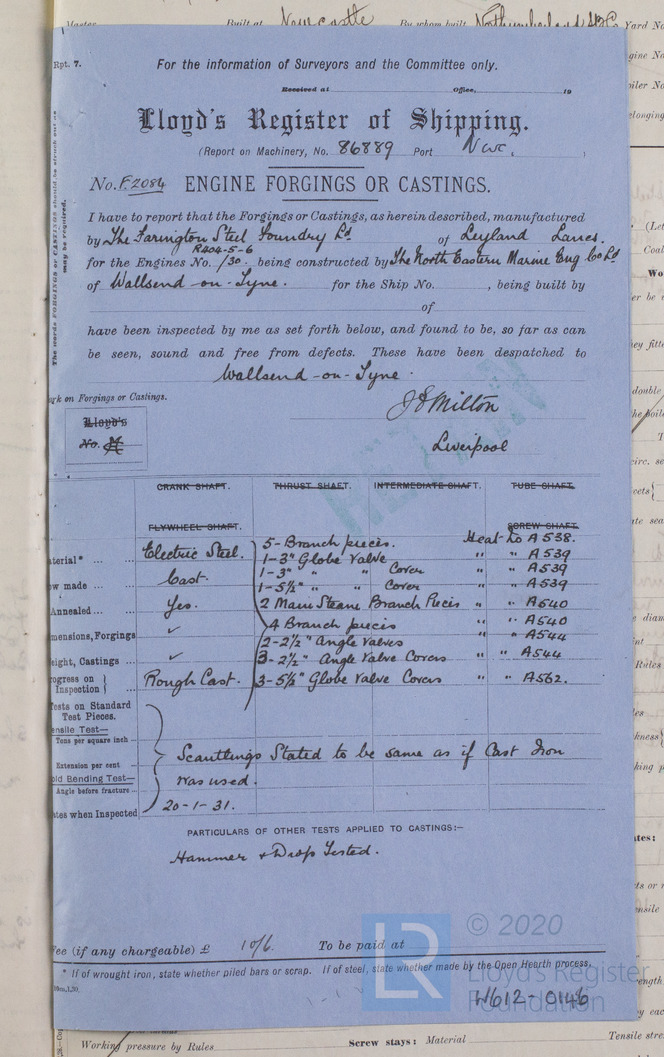 Master Built at Newcastle By whom built Northumberland S.B.Co Yard No
Rpt. 7.
For the information of Surveyors and the Committee only.
Received at Office, 19
Lloyd's Register of Shipping.
(Report on Machinery, No. 86889 Port Nwc. )
No. F.2084 ENGINE FORGINGS OR CASTINGS.
The words FORGINGS or CASTINGS should be struck out as
may be required.
I have to report that the Forgings or Castings, as herein described, manufactured
by The Farington Steel Foundry Ld of Leyland Lancs.
R204-5-6
for the Engines No. /30. being constructed by The North Eastern Marine Eng Co Ld
of Wallsend-on-Tyne. for the Ship No. , being built by
of
have been inspected by me as set forth below, and found to be, so far as can
be seen, sound and free from defects. These have been despatched to
Wallsend-on-Tyne.
rk on Forgings or Castings.
J S Milton
Lloyd's
No.
Liverpool
CRANK SHAFT. THRUST SHAFT. INTERMEDIATE SHAFT. TUBE SHAFT.
FLYWHEEL SHAFT. SCREW SHAFT
5-Branch pieces. Heat No A538.
terial* Electric Steel. 1-3" Globe Valve " " A539
1-3" " " Cover " " A539
ow made Cast. 1-5½" " " Cover " " A539
Annealed Yes. 2 Main Steam Branch Pieces " " A540
4 Branch pieces " " A540
mensions, Forgings ✓ 2-2½" Angle Valves " " A544
eight, Castings ✓ 3-2½" Angle Valve Covers " " A544
rogress on Inspection Rough Cast. 3-5½" Globe Valve Covers " " A562.
ests on Standard
Test Pieces.
ensile Test—
Tons per square inch
Extension per cent Scantlings Stated to be same as if Cast Iron
old Bending Test— was used.
Angle before fracture
tes when Inspected 20-1-31.
PARTICULARS OF OTHER TESTS APPLIED TO CASTINGS:—
Hammer & Drop Tested.
Fee (if any chargeable) £ 10/6. To be paid at
* If of wrought iron, state whether piled bars or scrap. If of steel, state whether made by the Open Hearth process.
10m,1,20.
LR © 2020
Lloyd's Register
Foundation
W612-0146
Working pressure by Rules Screw stays: Material Tensile stre